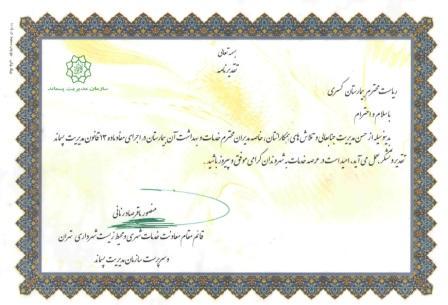 بسمه تعالی
تقدیرنامه
سازمان مدیریت پسماند
ریاست محترم بیمارستان کسری
با سلام و احترام
بدینوسیله از حسن مدیریت جنابعالی و تلاش های همکارانتان، خاصه مدیران محترم خدمات و بهداشت آن بیمارستان در اجرای مفاد ماده ۱۳ قانون مدیریت پسماند
تقدیر و تشکر بعمل می آید. امید است در عرصه خدمات به شهروندان گرامی موفق و پیروز باشید.
قائم مقام معاونت خدمات شهری و محیط زیست شهرداری تهران
و سرپرست سازمان مدیریت پسماند